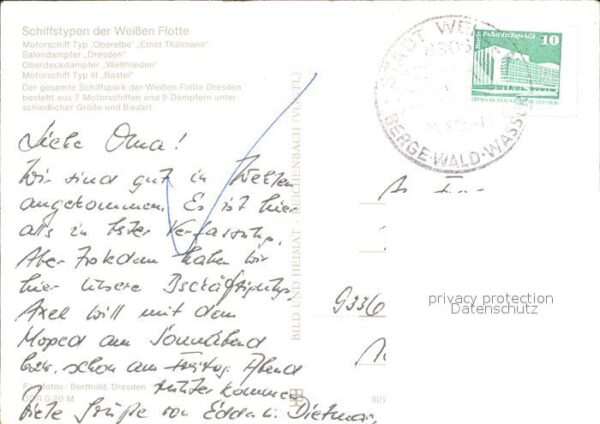 Schiffstypen der Weißen Flotte
Motorschiff Typ „Oberelbe“ „Ernst Thälmann“
Salondampfer „Dresden“
Oberdeckdampfer „Weltfrieden“
Motorschiff Typ III „Bastei“
Der gesamte Schiffspark der Weißen Flotte Dresden
besteht aus 7 Motorschiffen und 9 Dampfern unter-
schiedlicher Größe und Bauart.
Liebe Oma!
Wir sind gut in
angekommen. Es ist hier
als in Verfassung.
Aber trotzdem haben wir
hier unsere
Axel will mit dem
Moped am Sonnabend
bzw. schon am Freitag Abend
kommen
Viele Grüße von Edda u. Dietmar,
Fotos: Berthold, Dresden
DDR 0,20 M
BILD UND HEIMAT REICHENBACH (VOGTL)
STADT
BERGE·WALD·WASS
10
Palast der Republik
9336
privacy protection
Datenschutz